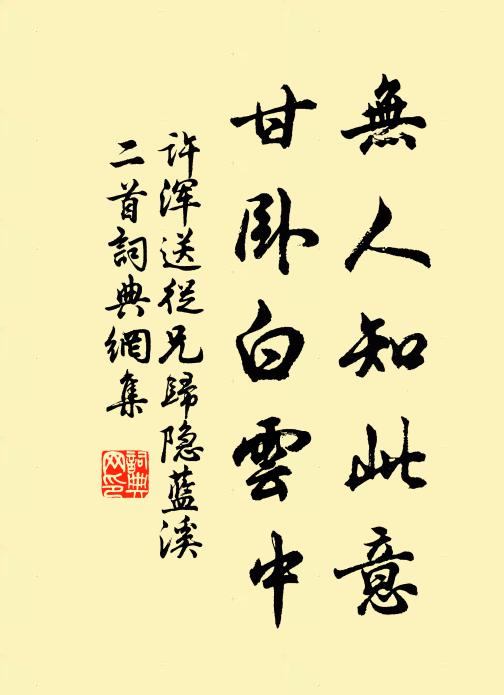 無人知此意
甘卧白雲中
许浑送從兄歸隐藍溪
二首詞典網集
詞典
网印